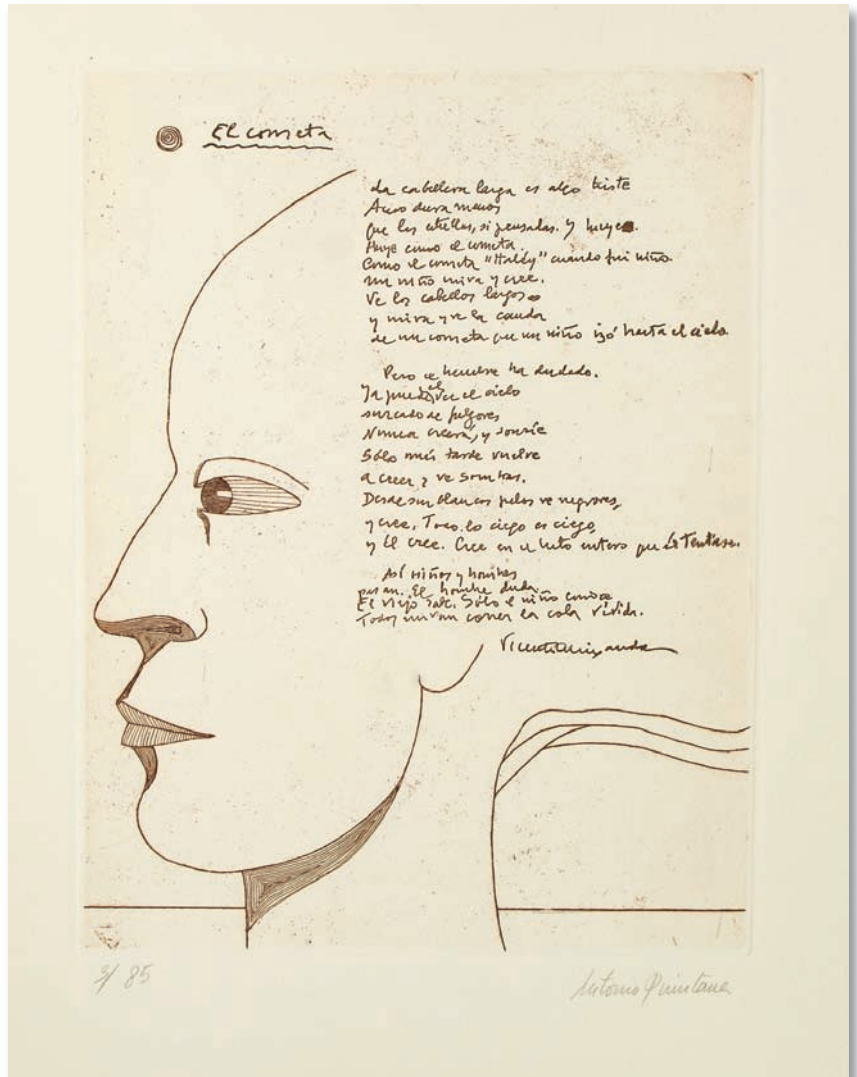 El cometa
La cabellera larga es algo triste
Acaso dura menos
que las estrellas, si pensadas. Y huye.
Huye como el cometa.
Como el cometa "Halley" cuando fui niño.
Un niño mira y cree.
Ve los cabellos largos
y mira y ve la cauda
de un cometa que un niño izó hasta el cielo.
Pero el hombre ha dudado.
Ya puede él ver el cielo
surcado de fulgores
Nunca creerá, y sonríe
Sólo más tarde vuelve
a creer y ve sombras.
Desde sus blancos pelos ve negrores,
y cree. Todo lo ciego es ciego,
y él cree. Cree en el luto entero que él tentase.
Así niños y hombres
pasan. El hombre duda.
El viejo sabe. Sólo el niño conoce
Todos miran correr la cola vívida.
Vicente Aleixandre
3/85
Antonio Quintana